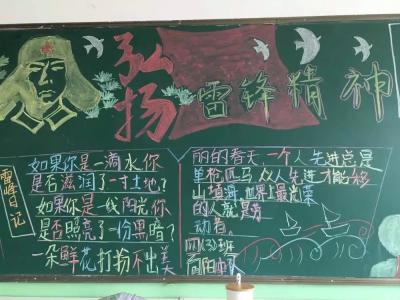 弘扬
雷锋精神
雷锋日记
如果你是一滴水你
是否滋润了一寸土地？
如果你是一线阳光你
是否照亮了一份黑暗？
一朵鲜花打扮不出美
丽的春天，一个人先进总是
单枪匹马，众人先进才能移
山填海，世界上最光荣
的人就是劳
动者。
四(3)班